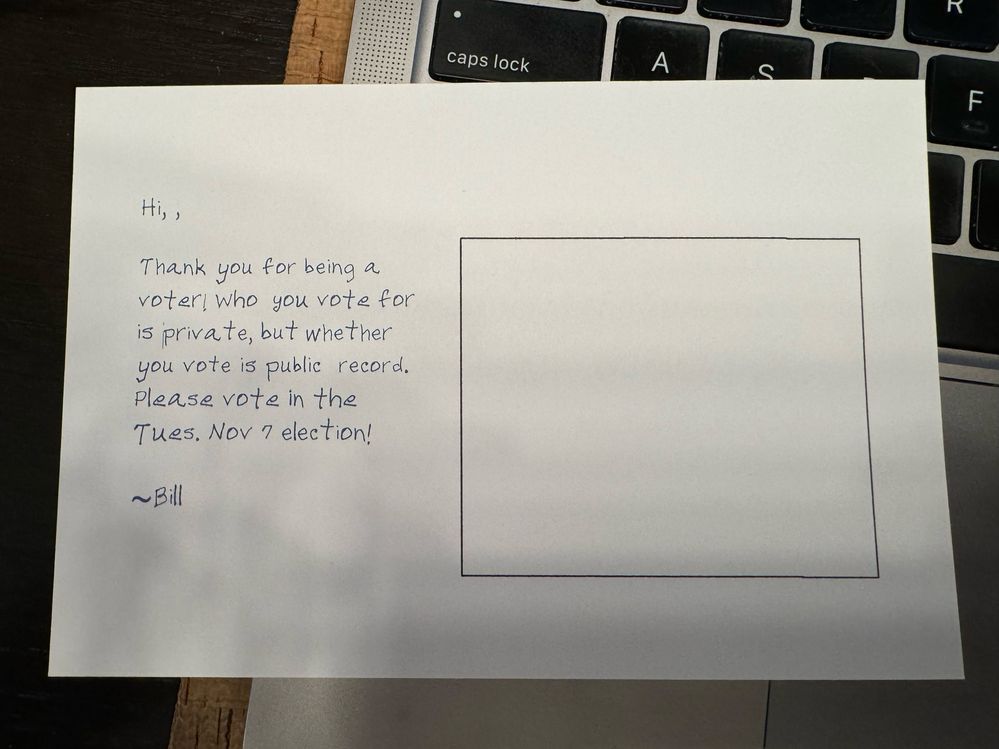 caps lock
A
S
F
R
Hi, ,
Thank you for being a
voter! Who you vote for
is private, but whether
you vote is public record.
Please vote in the
Tues. Nov 7 election!
~Bill